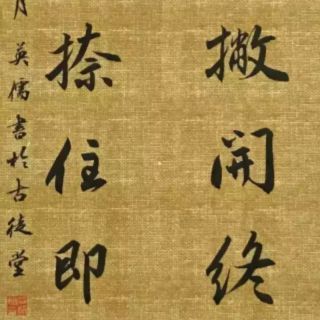 撇開終
捺住即
月英儒書於古堂